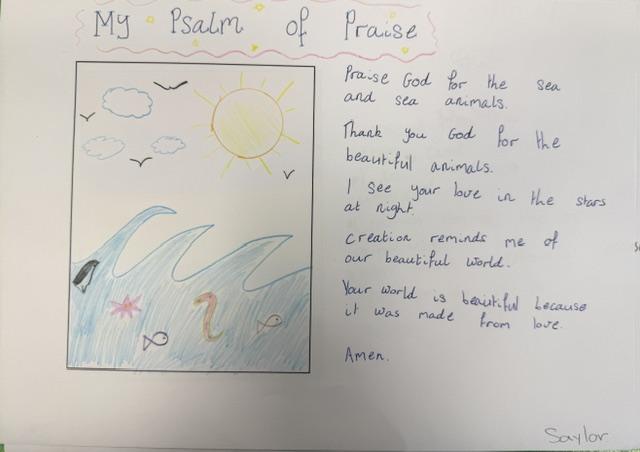 My Psalm of Praise
Praise God for the sea
and sea animals.
Thank you God for the
beautiful animals.
I see your love in the stars
at night.
Creation reminds me of
our beautiful world.
Your world is beautiful because
it was made from love.
Amen.
Saylor